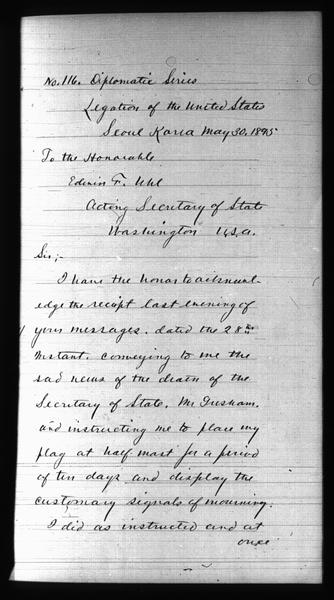 No. 116. Diplomatic Series
Legation of the United States
Seoul Korea May 30, 1895
To the Honorable
Edwin F. Uhl
Acting Secretary of State
Washington U.S.A.
Sir;-
I have the honor to acknowl-
edge the receipt last evening of
your messages. dated the 28th
Instant. conveying to me the
sad news of the death of the
Secretary of State, Mr Gresham.
and instructing me to place my
flag at half mast for a period
of ten days and display the
customary signals of mourning.
I did as instructed and at
once